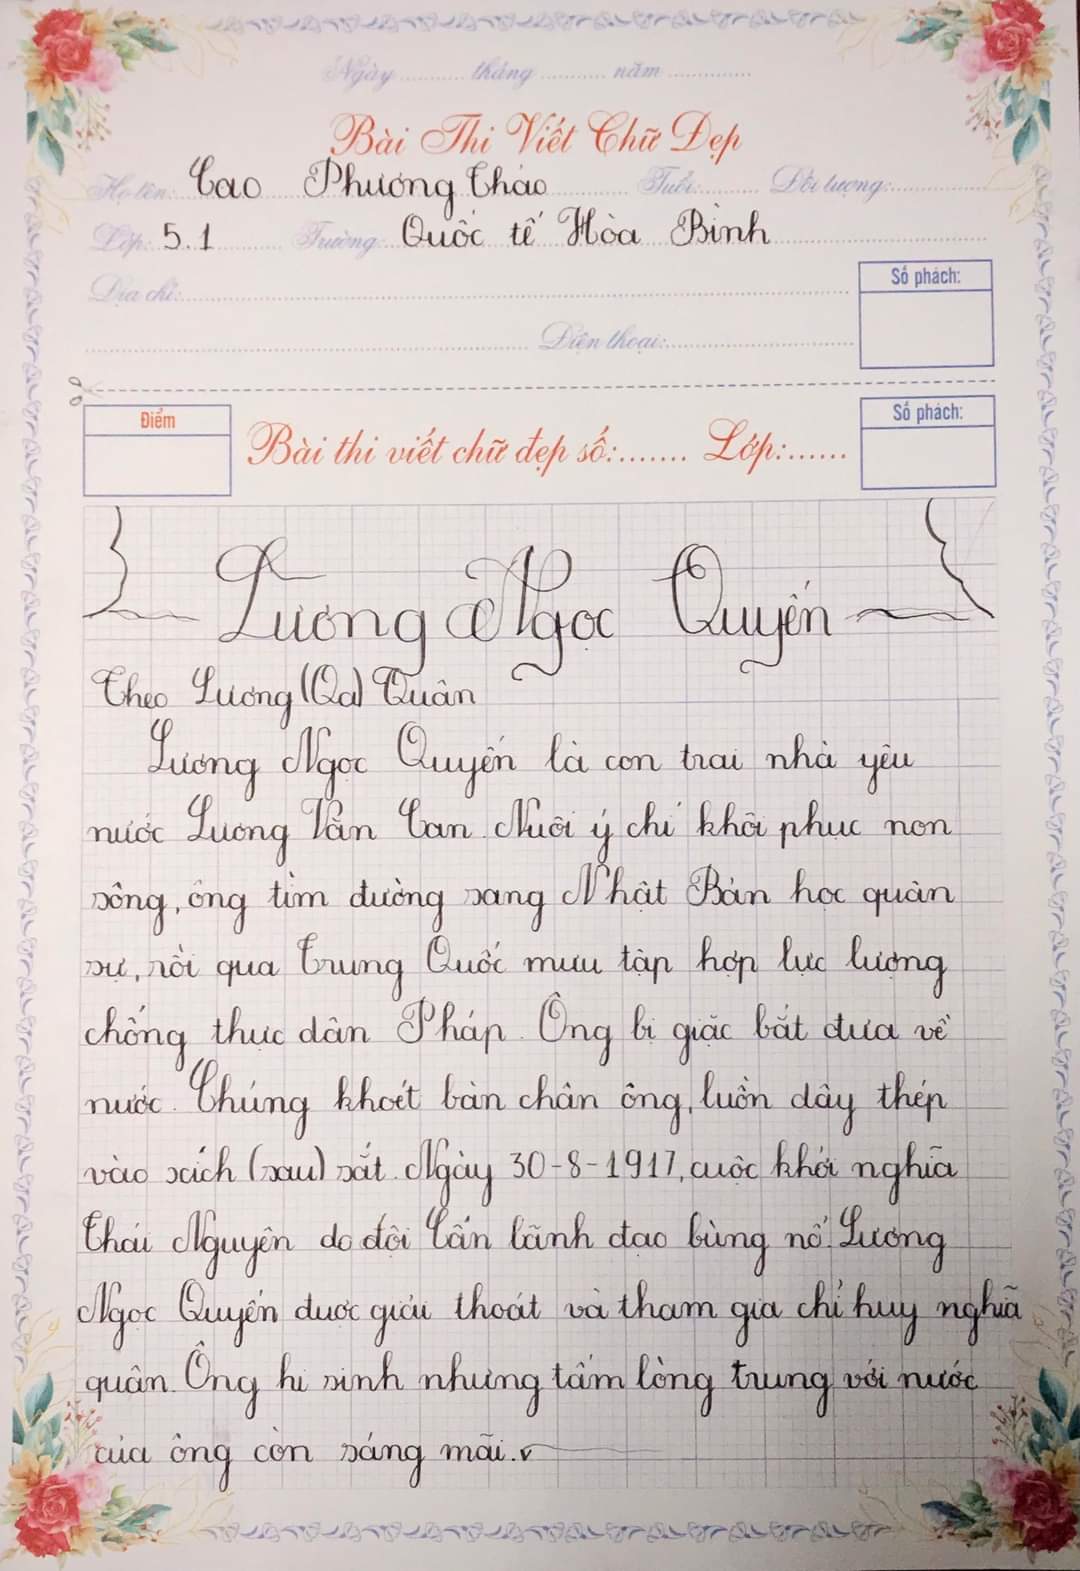 Ngày ........... tháng ........... năm ..............
Bài Thi Viết Chữ Đẹp
Họ tên: Cao Phương Thảo Tuổi: ......... Đối tượng: ..........
Lớp: 5.1 Trường: Quốc tế Hòa Bình
Địa chỉ: ..........
Số phách:
Điện thoại: ..........
Điểm
Bài thi viết chữ đẹp số:....... Lớp:......
Số phách:
Lương Ngọc Quyến
Theo Lương (Qa) Quân
Lương Ngọc Quyến là con trai nhà yêu
nước Lương Văn Can. Nuôi ý chí khôi phục non
sông, ông tìm đường sang Nhật Bản học quân
sự, rồi qua Trung Quốc mưu tập hợp lực lượng
chống thực dân Pháp. Ông bị giặc bắt đưa về
nước. Chúng khoét bàn chân ông, luồn dây thép
vào xích (sau) sắt. Ngày 30-8-1917, cuộc khởi nghĩa
Thái Nguyên do đội Cấn lãnh đạo bùng nổ. Lương
Ngọc Quyến được giải thoát và tham gia chỉ huy nghĩa
quân. Ông hi sinh nhưng tấm lòng trung với nước
của ông còn sáng mãi.